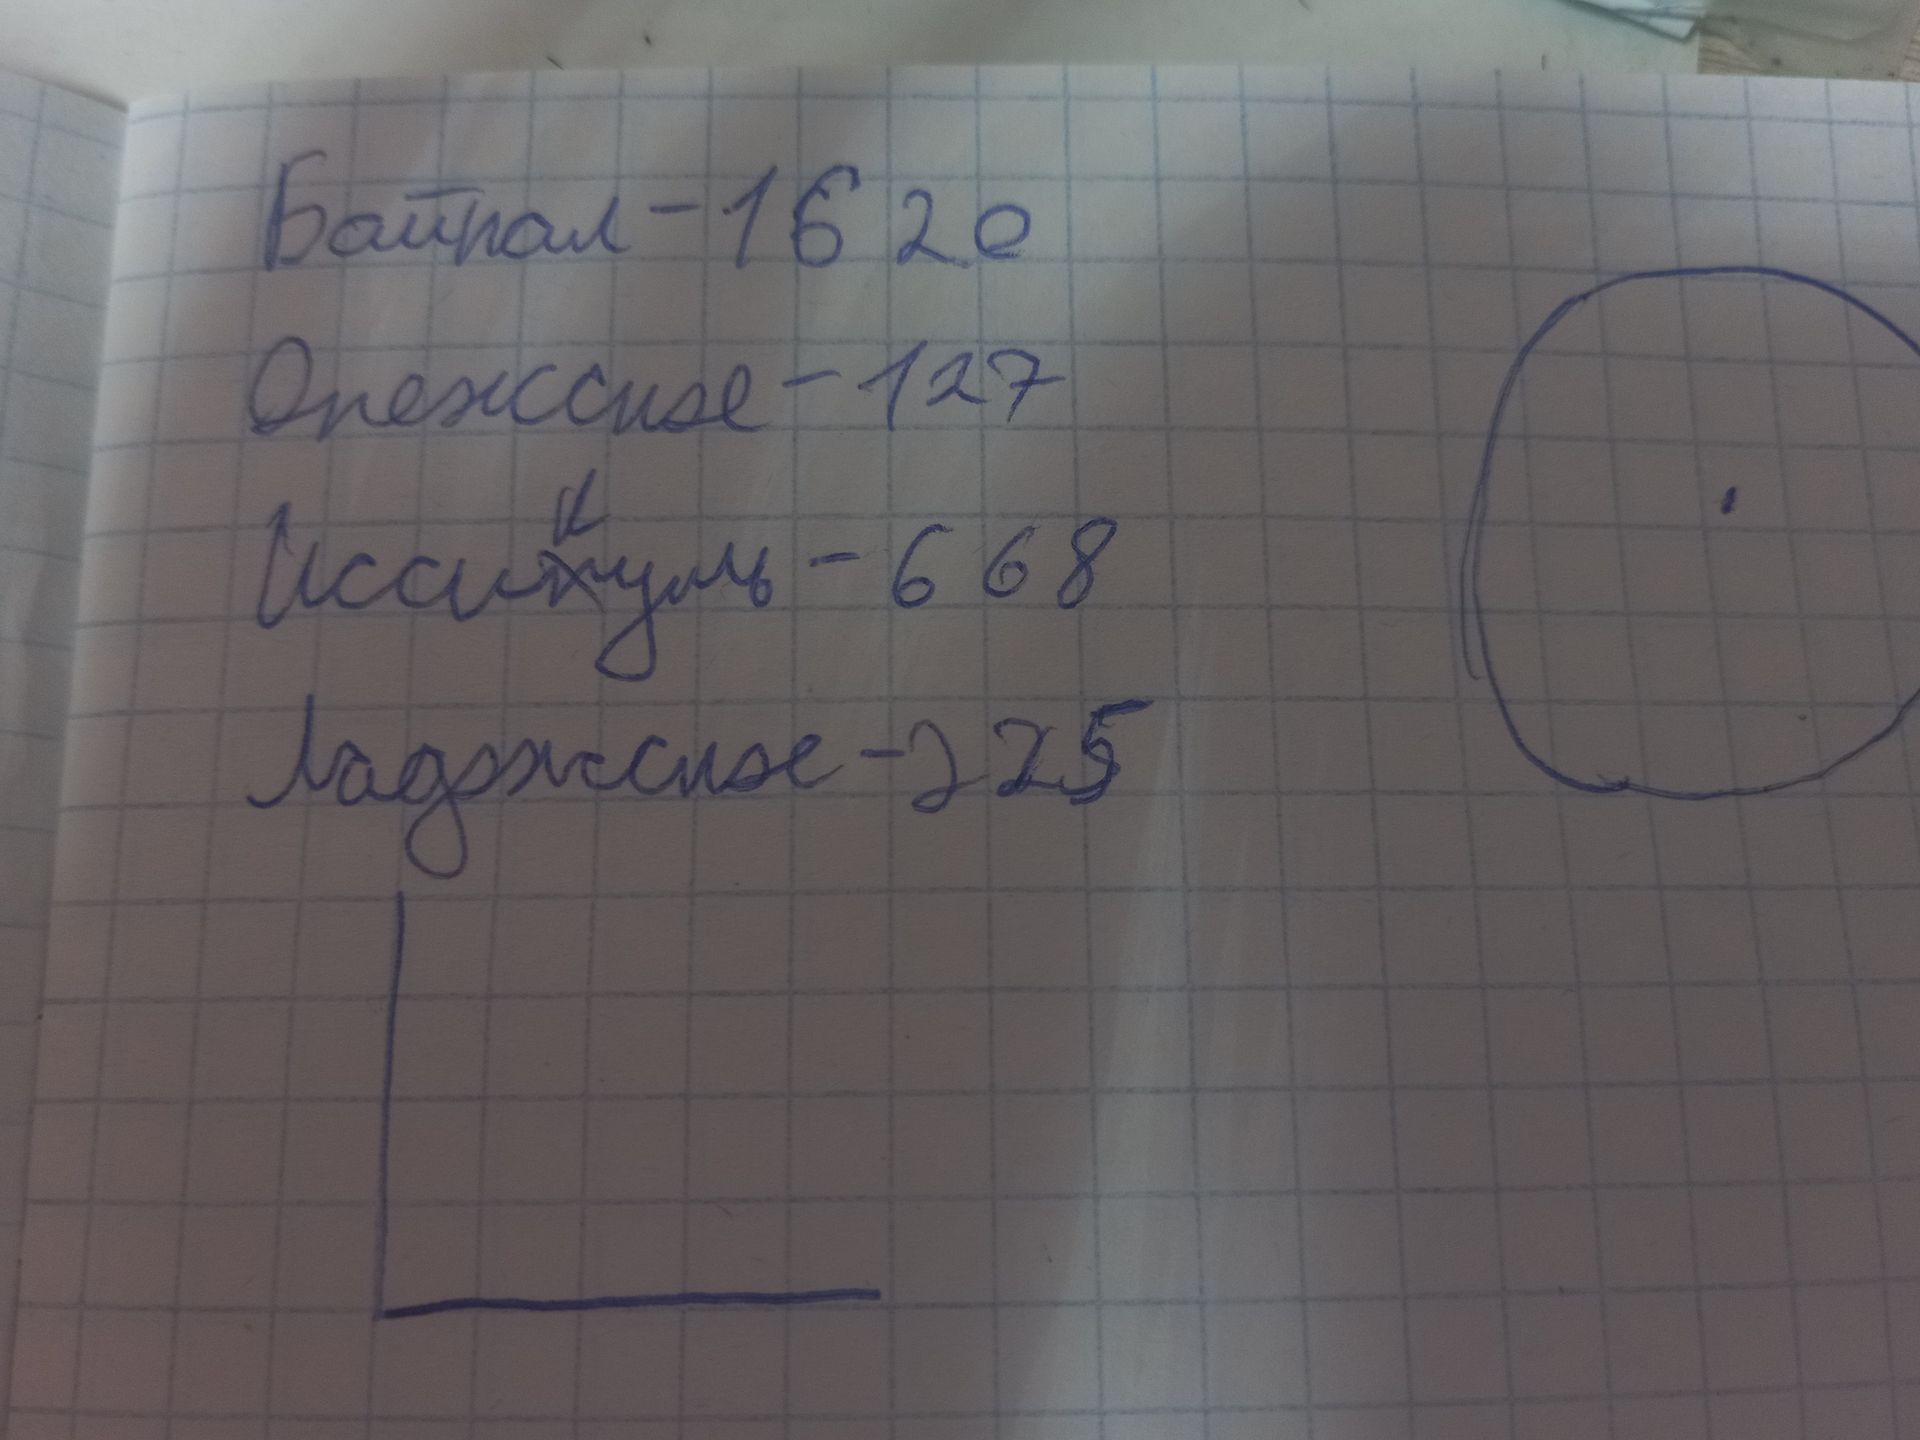 Байкал - 1620
Онежское - 127
Иссикуль - 668
Ладожское - 225